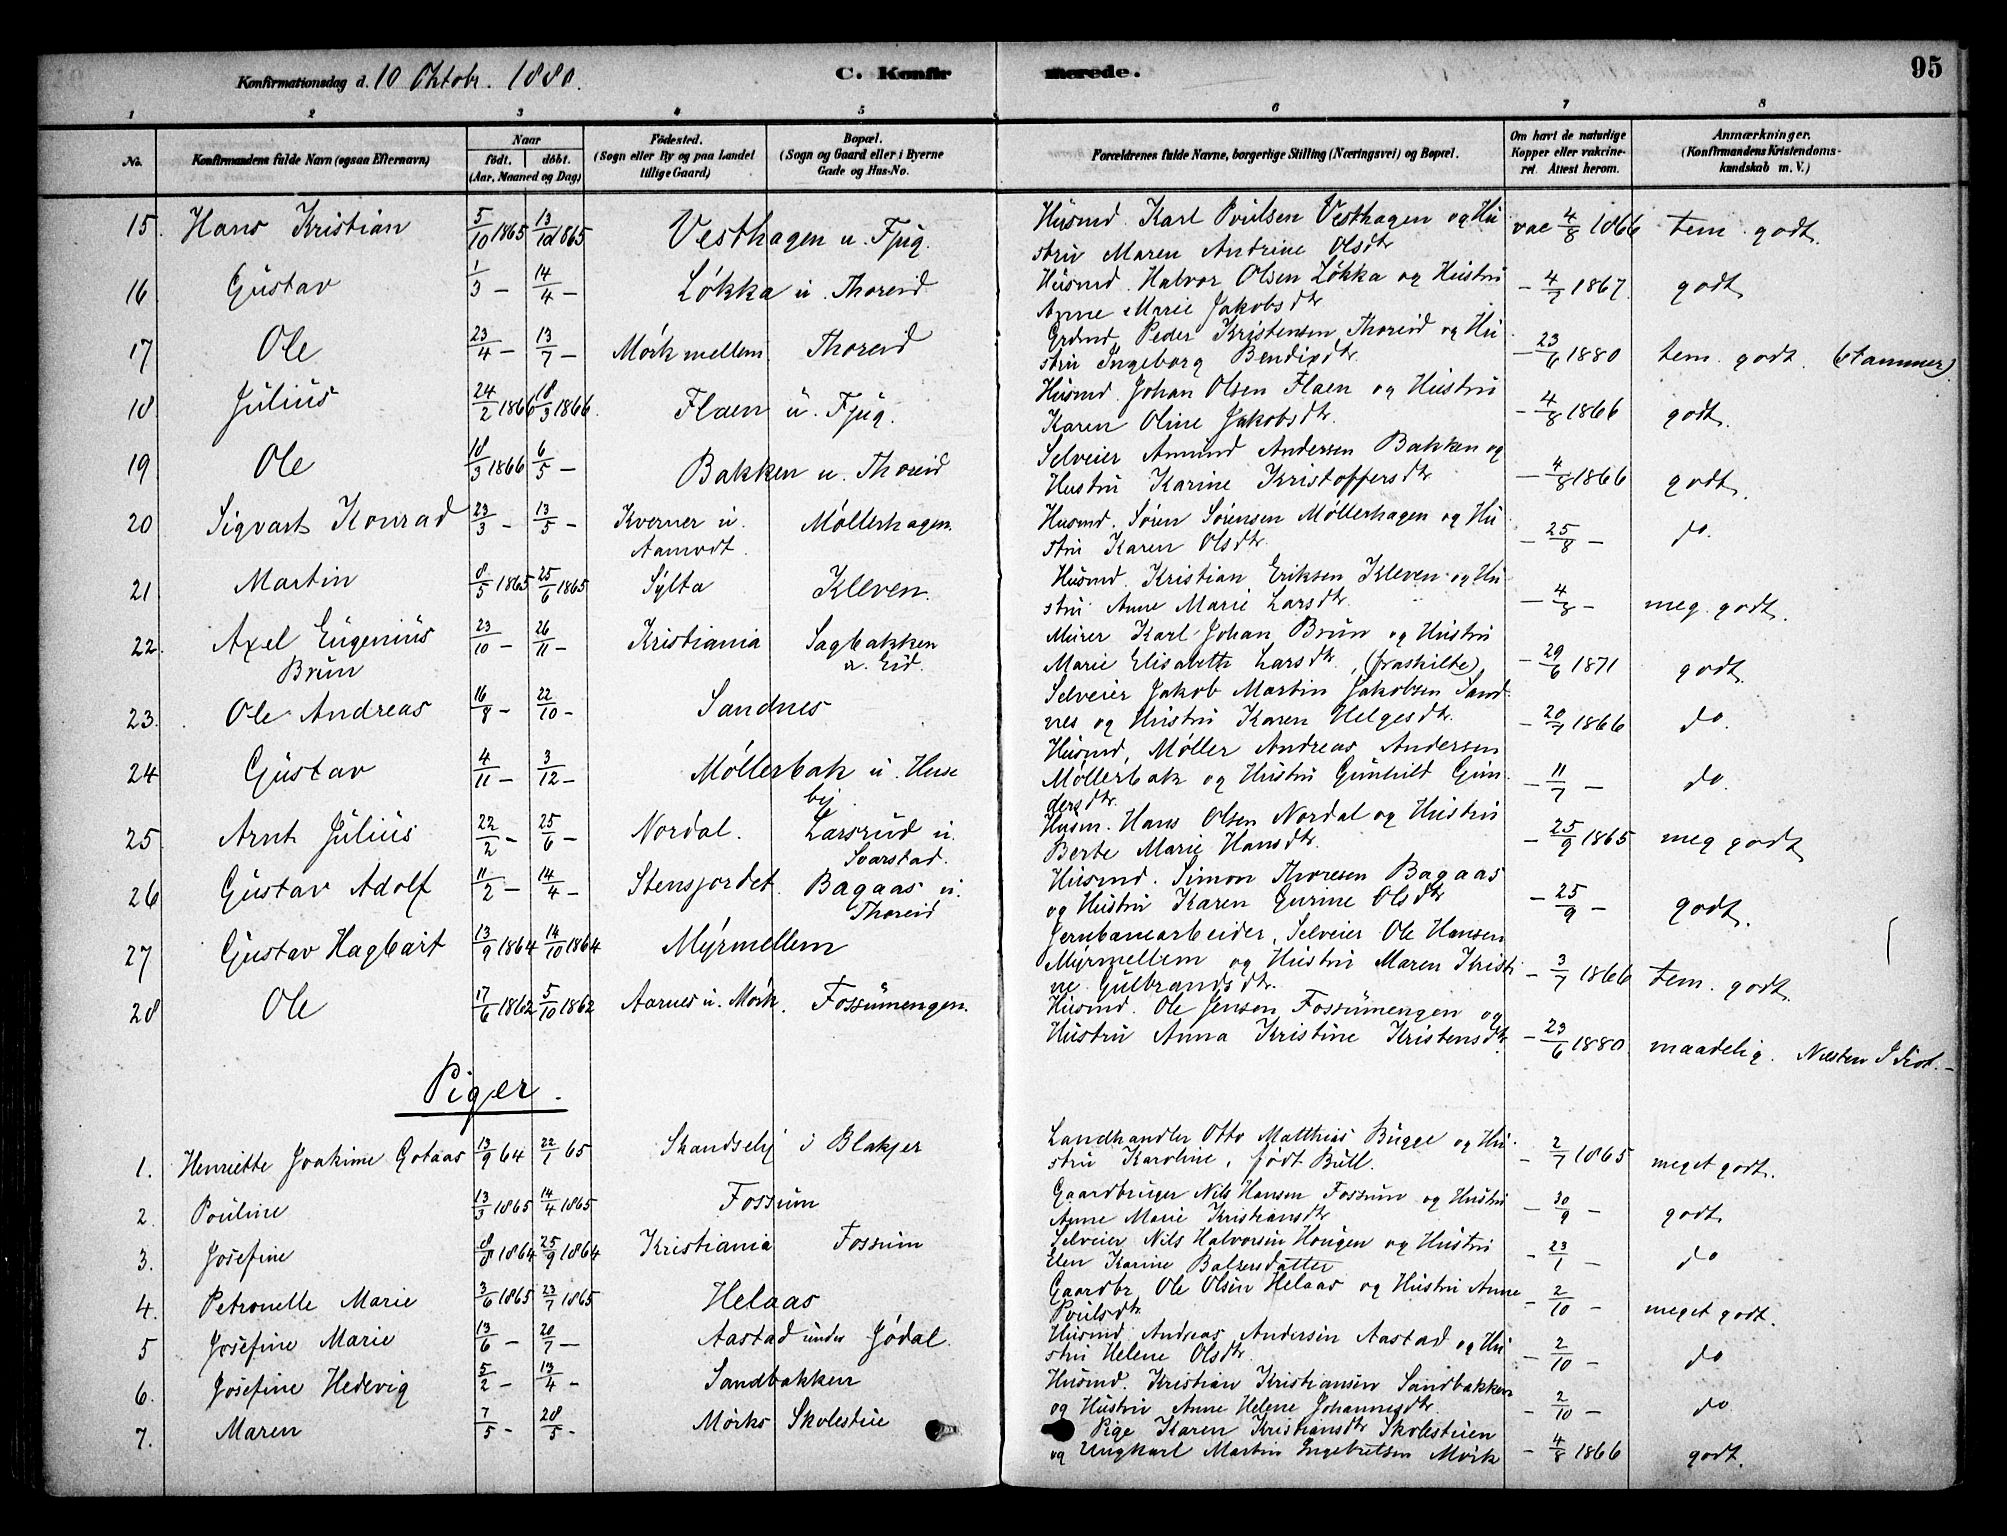 Konfirmationsdag d. 10 Oktobr. 1880.
C. Konfirmerede.
95
1 2 3 4 5 6 7 8
No.
Konfirmandens fulde Navn (ogsaa Efternavn)
Naar
födt. döbt.
(Aar, Maaned og Dag)
Födested.
(Sogn eller By og paa Landet
tillige Gaard)
Bopæl.
(Sogn og Gaard eller i Byerne
Gade og Hus-No.
Forældrenes fulde Navne, borgerlige Stilling (Næringsvei) og Bopæl.
Om havt de naturlige
Kopper eller vakcine-
ret. Attest herom.
Anmærkninger.
(Konfirmandens Kristendoms-
kundskab m. V.)
15 Hans Kristian 5/10 1865 13/10 1865 Vesthagen u. Fjug. Husmd. Karl Poulsen Vesthagen og Hu- vac 4/8 1866 tem. godt.
stru Maren Andrine Olsdtr
16 Gustav 1/3 – 14/4 – Løkka u. Thoreid Husmd. Halvor Olsen Løkka og Hustru – 4/7 1867. godt
Anne Marie Jakobsdtr
17 Ole 23/4 – 13/7 – Mørk mellem. Thoreid Grdmd. Peder Kristensen Thoreid og Hu- – 23/6 1880 tem. godt. (stammer)
stru Ingeborg Bendixdtr.
18 Julius 24/2 1866 18/3 1866. Flaen u. Fjug. Husmd. Johan Olsen Flaen og Hustru – 4/8 1866 godt.
Karen Oline Jakobsdtr.
19 Ole 18/3 1866 6/5 – Bakken u. Thoreid Selveier Amund Andersen Bakken og – 4/8 1866 godt.
Hustru Karine Kristoffersdtr
20 Sigvart Konrad 23/3 – 13/5 – Kverner u. Møllerhagen. Husmd. Søren Sørensen Møllerhagen og Hu- – 25/8 – do.
Aamodt. stru Karen Olsdtr.
21 Martin 8/5 1865 25/6 1865 Sylta Kleven. Husmd. Kristian Eriksen Kleven og Hu- – 4/8 – meg. godt.
stru Anne Marie Larsdtr.
22. Axel Eugenius 23/10 – 26/11 – Kristiania Sagbakken Murer Karl Johan Brun og Hustru – 29/6 1871 godt
Brun u. Eid. Marie Elisabeth Larsdtr. (fraskilte),
23. Ole Andreas 16/8 – 22/10 – Sandnes Selveier Jakob Martin Jakobsen Sand- – 20/7 1866 do.
nes og Hustru Karen Helgesdtr.
24 Gustav 4/11 – 3/12 – Møllerbak u. Huse Husmd, Møller Andreas Andersen – 11/7 – do.
by. Møllerbak og Hustru Gunhild Gun-
dersdtr.
25 Arnt Julius 22/2 – 25/6 – Nordal. Larsrud u. Husm. Hans Olsen Nordal og Hustru – 25/9 1865 meg godt
Svarstad. Berte Marie Hansdtr.
26 Gustav Adolf 11/2 – 14/4 – Stensjordet. Bagaas u. Husmd. Simon Thoresen Bagaas – 25/9 – godt.
Thoreid og Hustru Karen Gurine Olsdtr
27 Gustav Hagbart 13/9 1864 14/10 1864 Myrmellem Jernbanearbeider, Selveier Ole Hansen – 3/7 1866 tem. godt
Myrmellem og Hustru Maren Kristi-
ne Gulbrandsdtr.
28 Ole 17/6 1862 5/10 1862 Aarnes u. Mørk. Fossumengen. Husmd. Ole Jensen Fossumengen og – 23/6 1880. maadelig. Næsten Idiot. –
Hustru Anna Kristine Kristensdtr.
Piger.
1. Henriette Joakime Gotaas 13/9 64 22/1 65 Skandseby i Blakjer Landhandler Otto Matthias Bugge og Hu- – 2/7 1865 meget godt.
stru Karoline, født Bull.
2. Pouline 13/3 1865 14/4 1865 Fossum Gaardbruger Nils Hansen Fossum og Hustru – 30/9 – godt
Anne Marie Kristiansdtr
3. Josefine 8/8 1864 25/9 1864 Kristiania Fossum Selveier Nils Halvorsen Hougen og Hustru – 23/1 – do
Elen Karine Balzersdatter
4. Petronelle Marie 3/6 1865 23/7 1865 Helaas Gaardbr. Ole Olsen Helaas og Hustru Anne – 2/10 – meget godt.
Poulsdtr
5 Josefine Marie 13/6 – 20/7 – Aastad under Jødal. Husmd Andreas Andersen Aastad og Hu- – 2/10 – do
stru Helene Olsdtr.
6. Josefine Hedevig 5/2 – 13/4 – Sandbakken Husmd. Kristian Kristiansen Sandbakken – 2/10 – do
og Hustru Anne Helene Johannesdtr.
7. Maren 7/5 – 28/5 – Mørks Skolestue Pige Karen Kristiansdtr Skolestuen – 4/8 1866 godt.
og Ungkarl Martin Ingebretsen Mørk